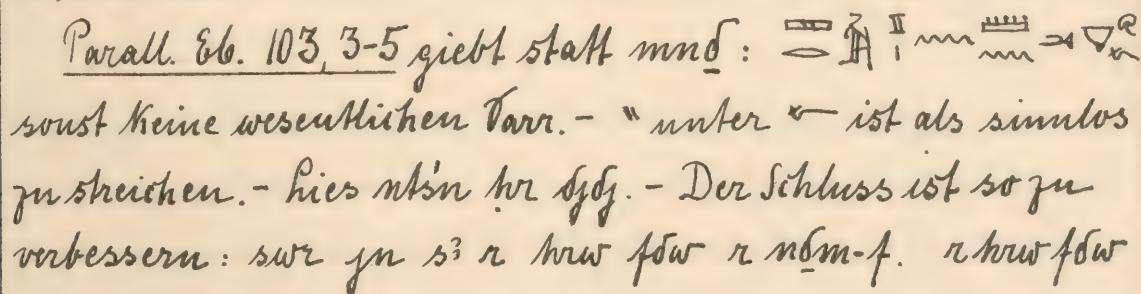 Parall. Eb. 103, 3-5 giebt statt mnḏ:
sonst keine wesentlichen Varr. - " unter ist als sinnlos
zu streichen. - Lies ntśn ḥr - Der Schluss ist so zu
verbessern: swr jn s³ r hrw fdw r nḏm-f. r hrw fdw